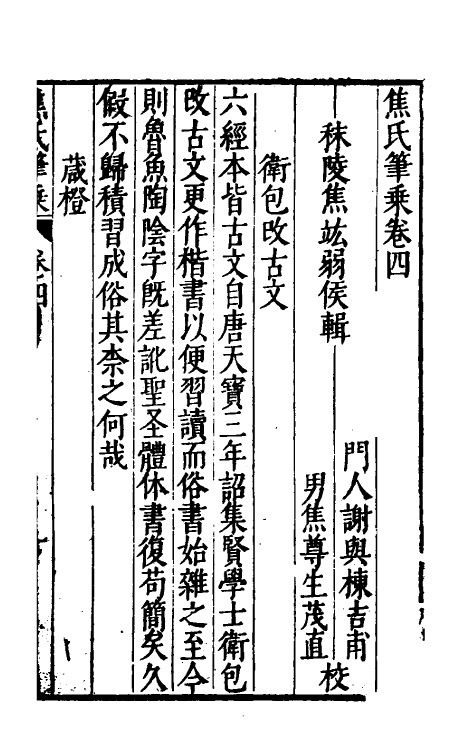 焦氏筆乗卷四
秣陵焦竑弱侯輯
門人謝與棟吉甫
男焦尊生茂直 校
衛包改古文
六經本皆古文自唐天寶三年詔集賢學士衛包
改古文更作楷書以便習讀而俗書始雜之至今
則魯魚陶陰字旣差訛聖圣體休書復苟簡矣久
假不歸積習成俗其柰之何哉
葴橙
焦氏筆乗 卷四